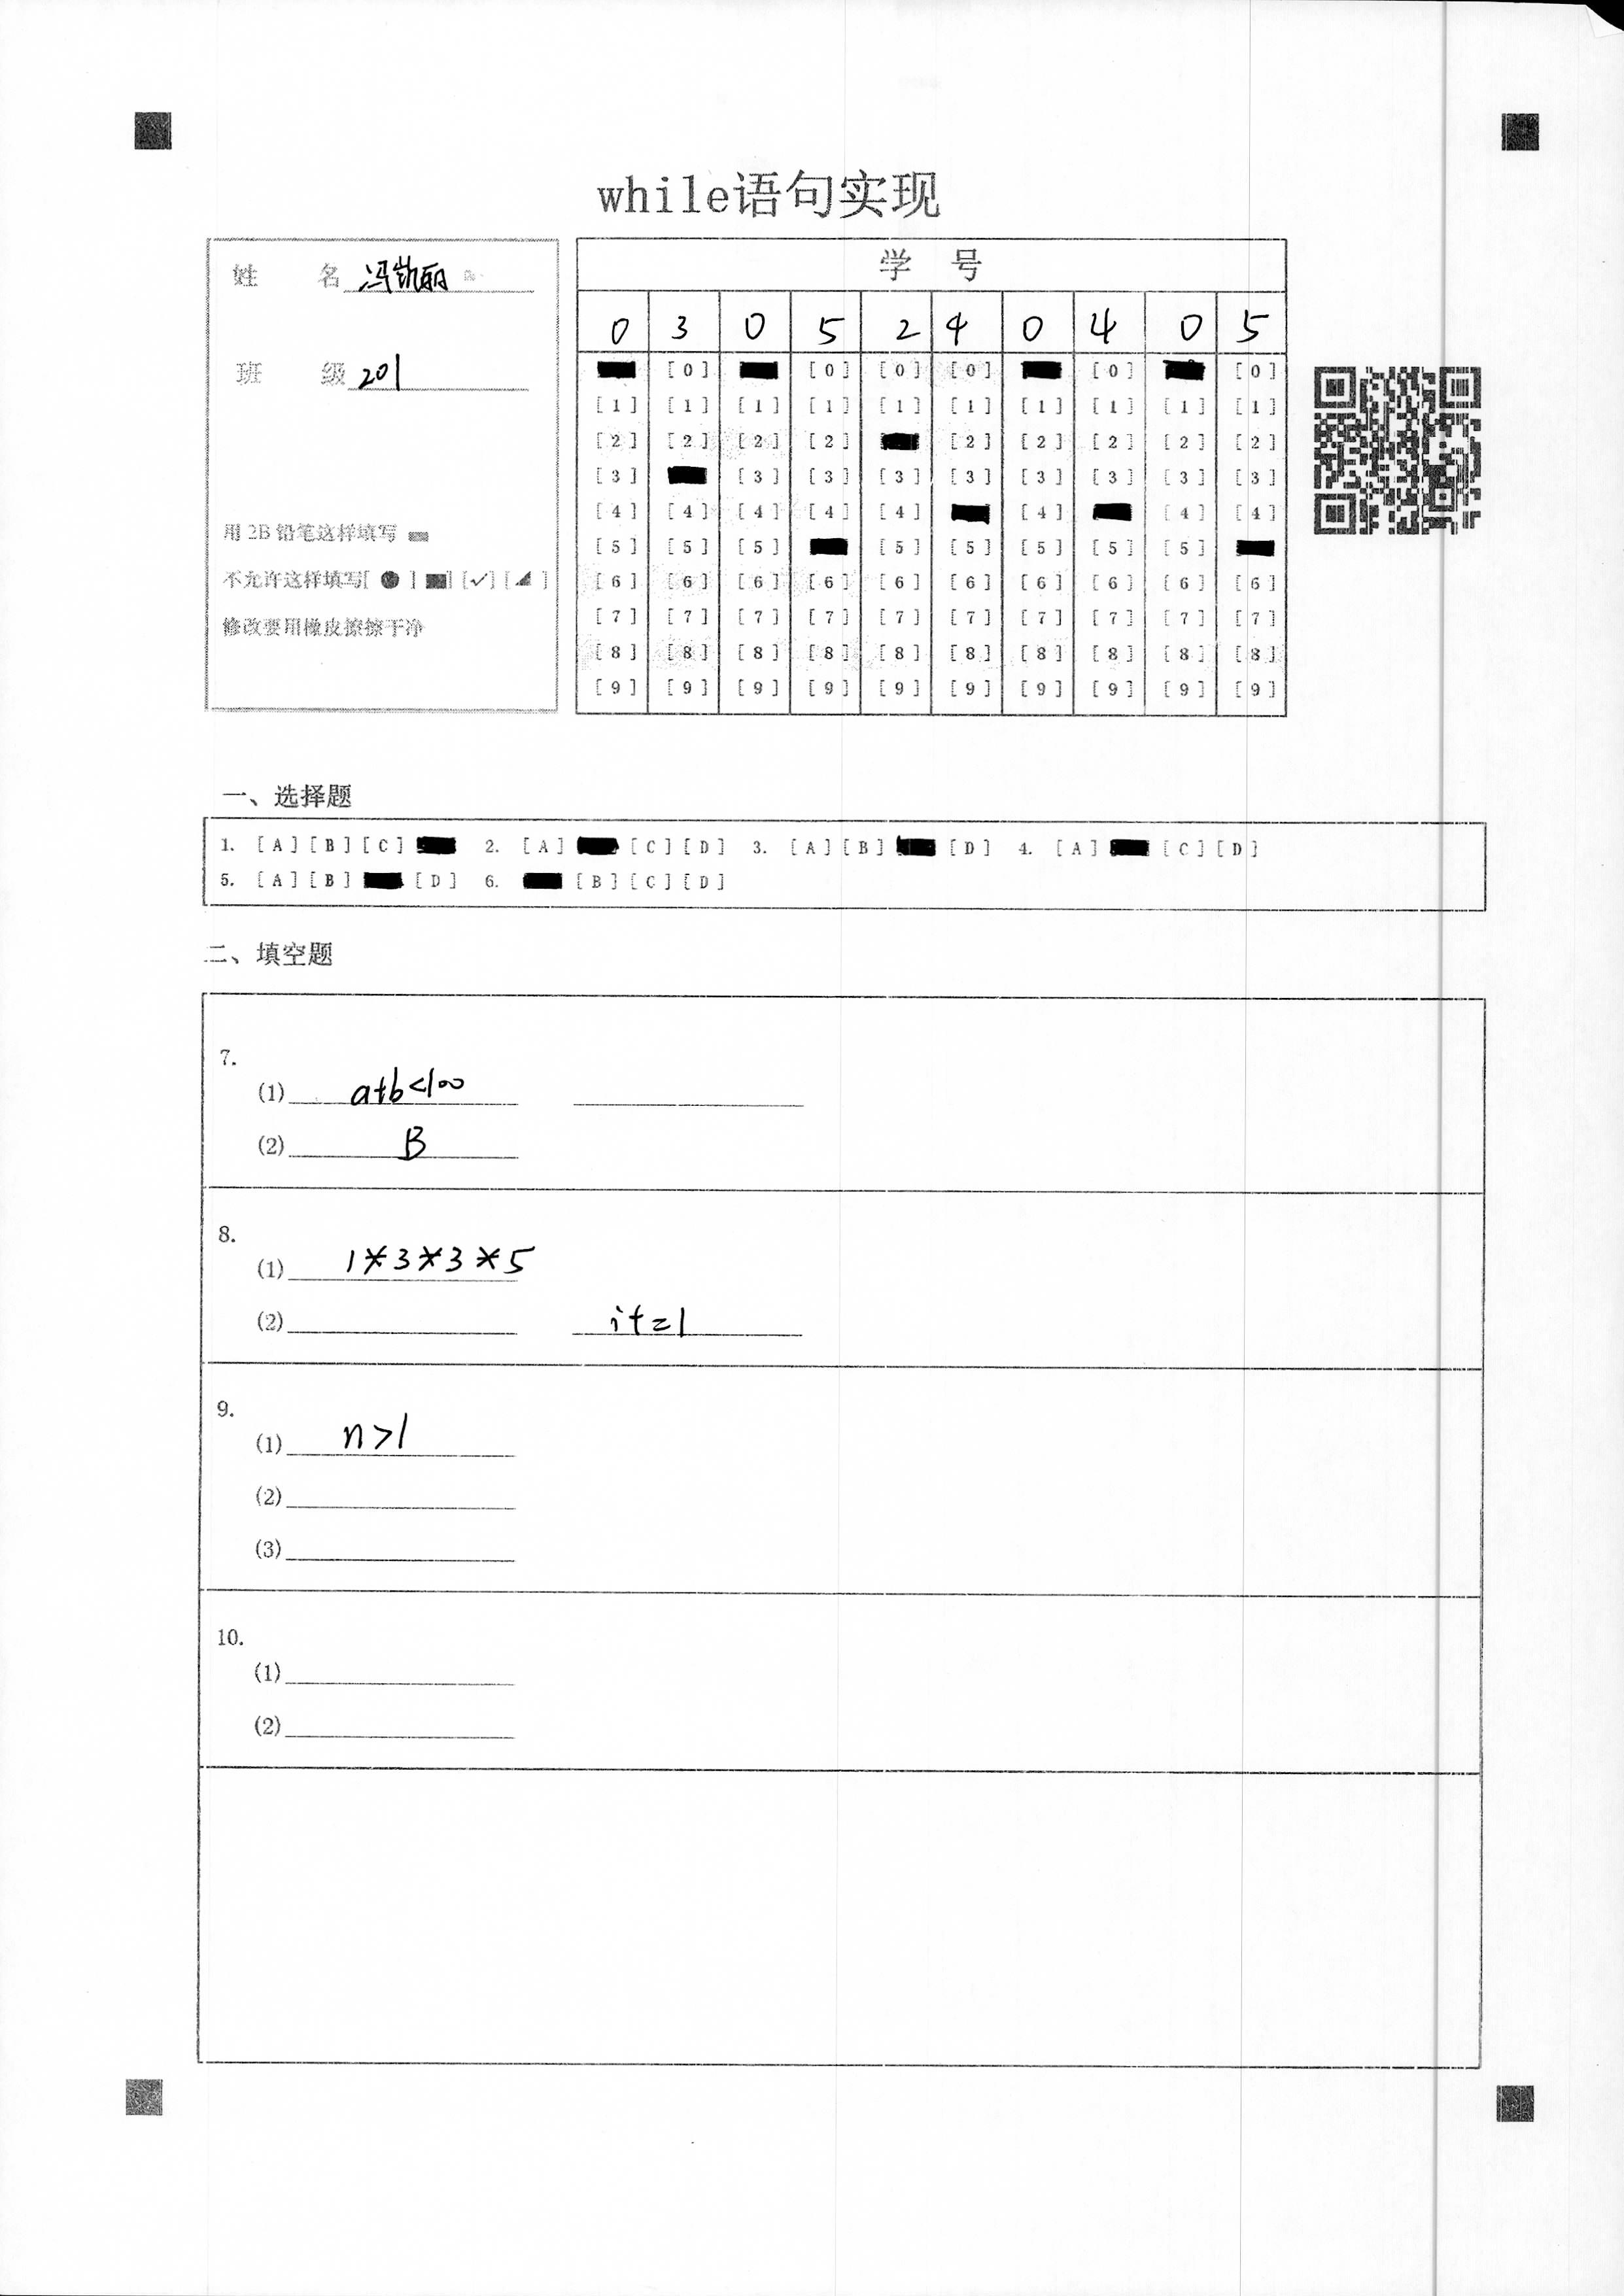 while语句实现
姓 名 冯凯丽
班 级 201
用 2B 铅笔这样填写
不允许这样填写[ ● ] ■] [✓] [◢ ]
修改要用橡皮擦擦干净
学 号
0 3 0 5 2 4 0 4 0 5
[0] [0] [0] [0] [0] [0]
[1] [1] [1] [1] [1] [1] [1] [1] [1] [1]
[2] [2] [2] [2] [2] [2] [2] [2] [2]
[3] [3] [3] [3] [3] [3] [3] [3] [3]
[4] [4] [4] [4] [4] [4] [4] [4]
[5] [5] [5] [5] [5] [5] [5] [5]
[6] [6] [6] [6] [6] [6] [6] [6] [6] [6]
[7] [7] [7] [7] [7] [7] [7] [7] [7] [7]
[8] [8] [8] [8] [8] [8] [8] [8] [8] [8]
[9] [9] [9] [9] [9] [9] [9] [9] [9] [9]
一、选择题
1. [A] [B] [C] 2. [A] [C] [D] 3. [A] [B] [D] 4. [A] [C] [D]
5. [A] [B] [D] 6. [B] [C] [D]
二、填空题
7.
(1) a+b<100
(2) B
8.
(1) 1*3*3*5
(2) i+=1
9.
(1) n>1
(2)
(3)
10.
(1)
(2)